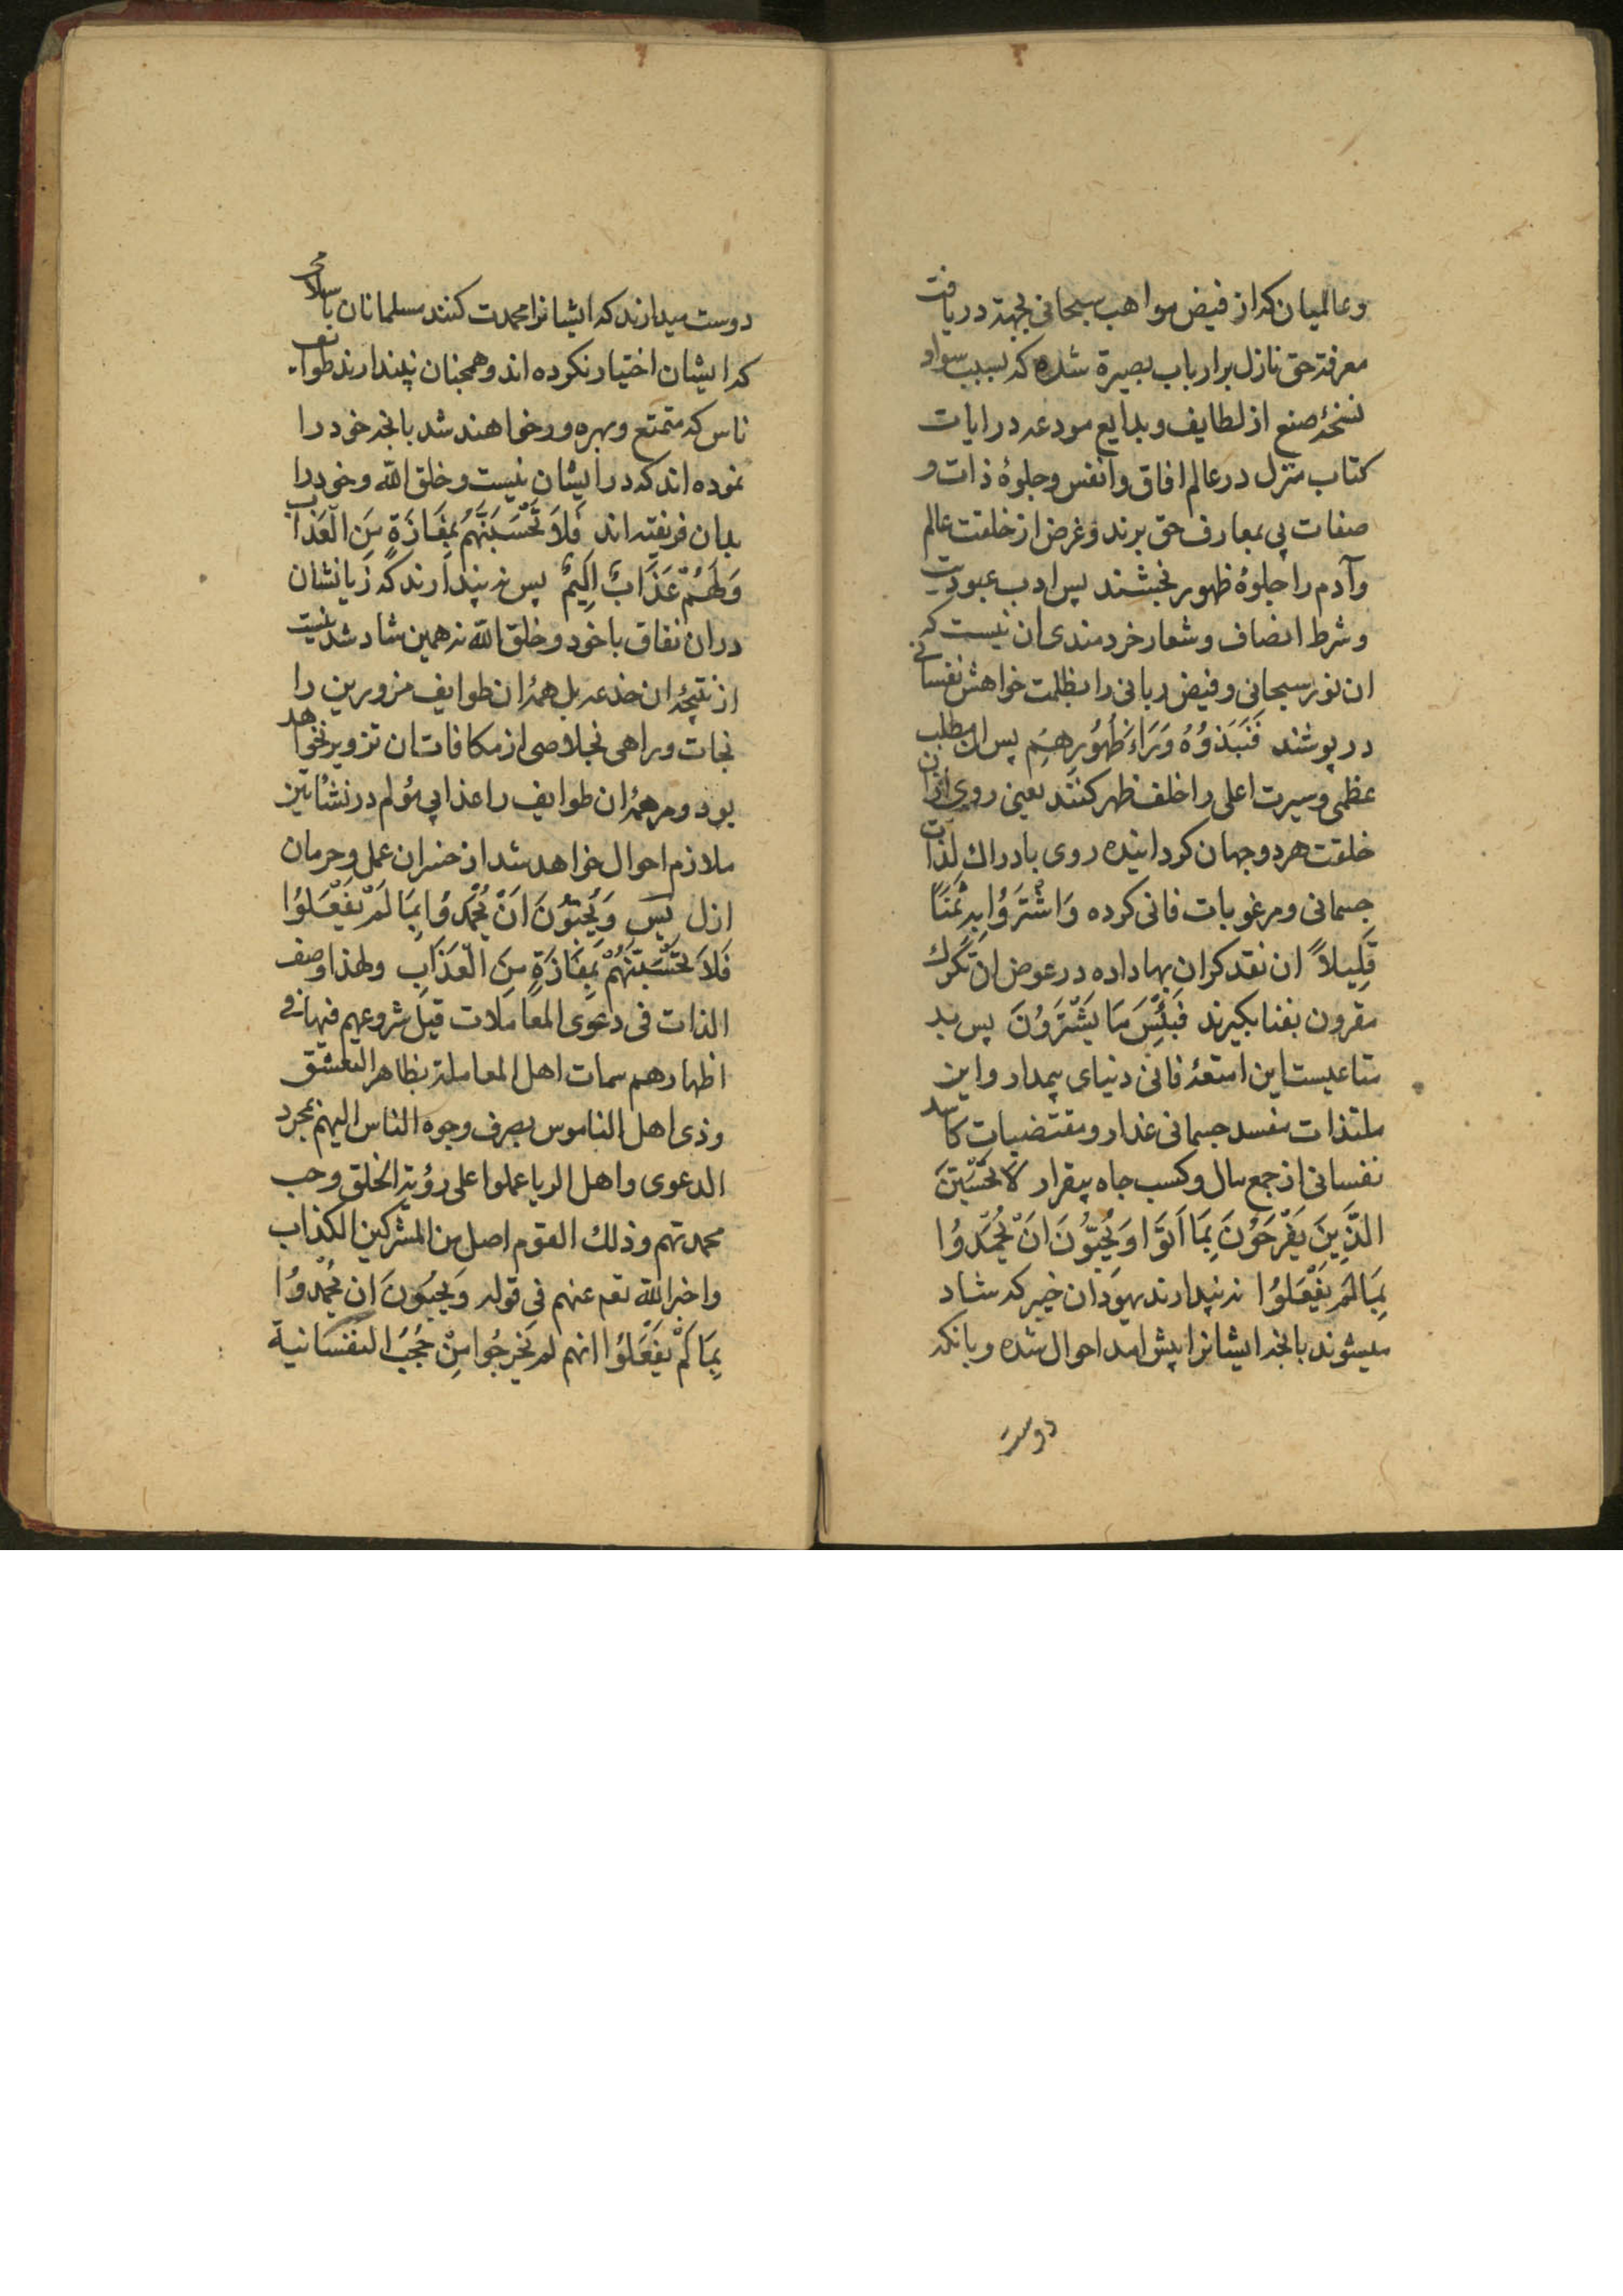 وعالمیان که از فیض مواهب سبحانی بجهة دریافت
معرفة حق نازل بر ارباب بصیرة شده که بسبب سواد
نسخهٔ صنع از لطایف و بدایع مودعه در ایات
کتاب منزل در عالم افاق وانفس وجلوهٔ ذات و
صفات پی بمعارف حق برند وغرض از خلقت عالم
وآدم را جلوهٔ ظهور بخشند پس ادب عبودیت
وشرط انصاف وشعار خردمندی ان نیست که
ان نور سبحانی وفیض ربانی را بظلمت خواهش نفسانی
در پوشند فَنَبَذُوُهُ وَرَاءَ ظُهُورِهِمْ پس ان مطلب
عظمی وسیرت اعلی را خلف ظهر کنند یعنی روی ازان
خلقت هر دو جهان کردانیده روی بادراك لذات
جسمانی ومرغوبات فانی کرده وَاشْتَرَوُا بِهِ ثَمَنًا
قَلِیلاً ان نقد کران بها داده در عوض ان
مقرون بفنا بکیرند فَبِئْسَ مَا يَشْتَرُوُنَ پس بد
متاعیست این امتعهٔ فانی دنیای بیمدار واین
ملتذات مفسد جسمانی غدار ومقتضیات کاسد
نفسانی از جمع مال وکسب جاه بیقرار لَا تَحْسَبَنَّ
الَّذِينَ يَفْرَحُوُنَ بِمَا اَتَوْا وَيُحِبُّونَ اَنْ يُحْمَدُوُا
بِمَا لَمْ يَفْعَلُوُا نه پندارند یهودان خیبر که شاد
میشوند بانچه ایشانرا پیش امد احوال شده و بانکه
دوست
دوست میدارند که ایشانرا محمدت کنند مسلمانان با
که ایشان اختیار نکرده اند وهمچنان نپندارند طوایف
ناس که متمتع وبهره ور خواهند شد بانچه خود را
نموده اند که در ایشان نیست وخلق الله وخود را
بدان فریفته اند فَلَا تَحْسَبَنَّهُمْ بِمَفَازَةٍ مِنَ الْعَذَابِ
وَلَهُمْ عَذَابٌ اَلِيمٌ پس نه پندارند که زیانشان
دران نفاق با خود وخلق الله نه همین شاد شد نیست
از نتیجهٔ ان خدعه بل همهٔ ان طوایف مزورین را
نجات وراهی بخلاصی از مکافات ان تزویر نخواهد
بود ومر همهٔ ان طوایف را عذابی مؤلم در نشأتین
ملازم احوال خواهد شد از خسران عمل وحرمان
ازل پس وَيُحِبُّونَ اَنْ يُحْمَدُوُا بِمَا لَمْ يَفْعَلُوُا
فَلَا تَحْسَبَنَّهُمْ بِمَفَازَةٍ مِنَ الْعَذَابِ ولهذا وصف
الذات فی دعوی المعاملات قبل شروعهم فیها فی
اظهارهم سمات اهل المعاملة بظاهر التعشق
وذی اهل الناموس بصرف وجوه الناس الیهم بمجرد
الدعوی واهل الریا عملوا علی رؤیة الخلق وحب
محمدتهم وذلك القوم اصل من المشرکین الکذاب
واخبر الله تعم عنهم فی قوله وَيُحِبُّونَ اَنْ يُحْمَدُوُا
بِمَا لَمْ يَفْعَلُوُا انهم لم يَخْرُجُوا مِنْ حُجُبِ النفسانیة